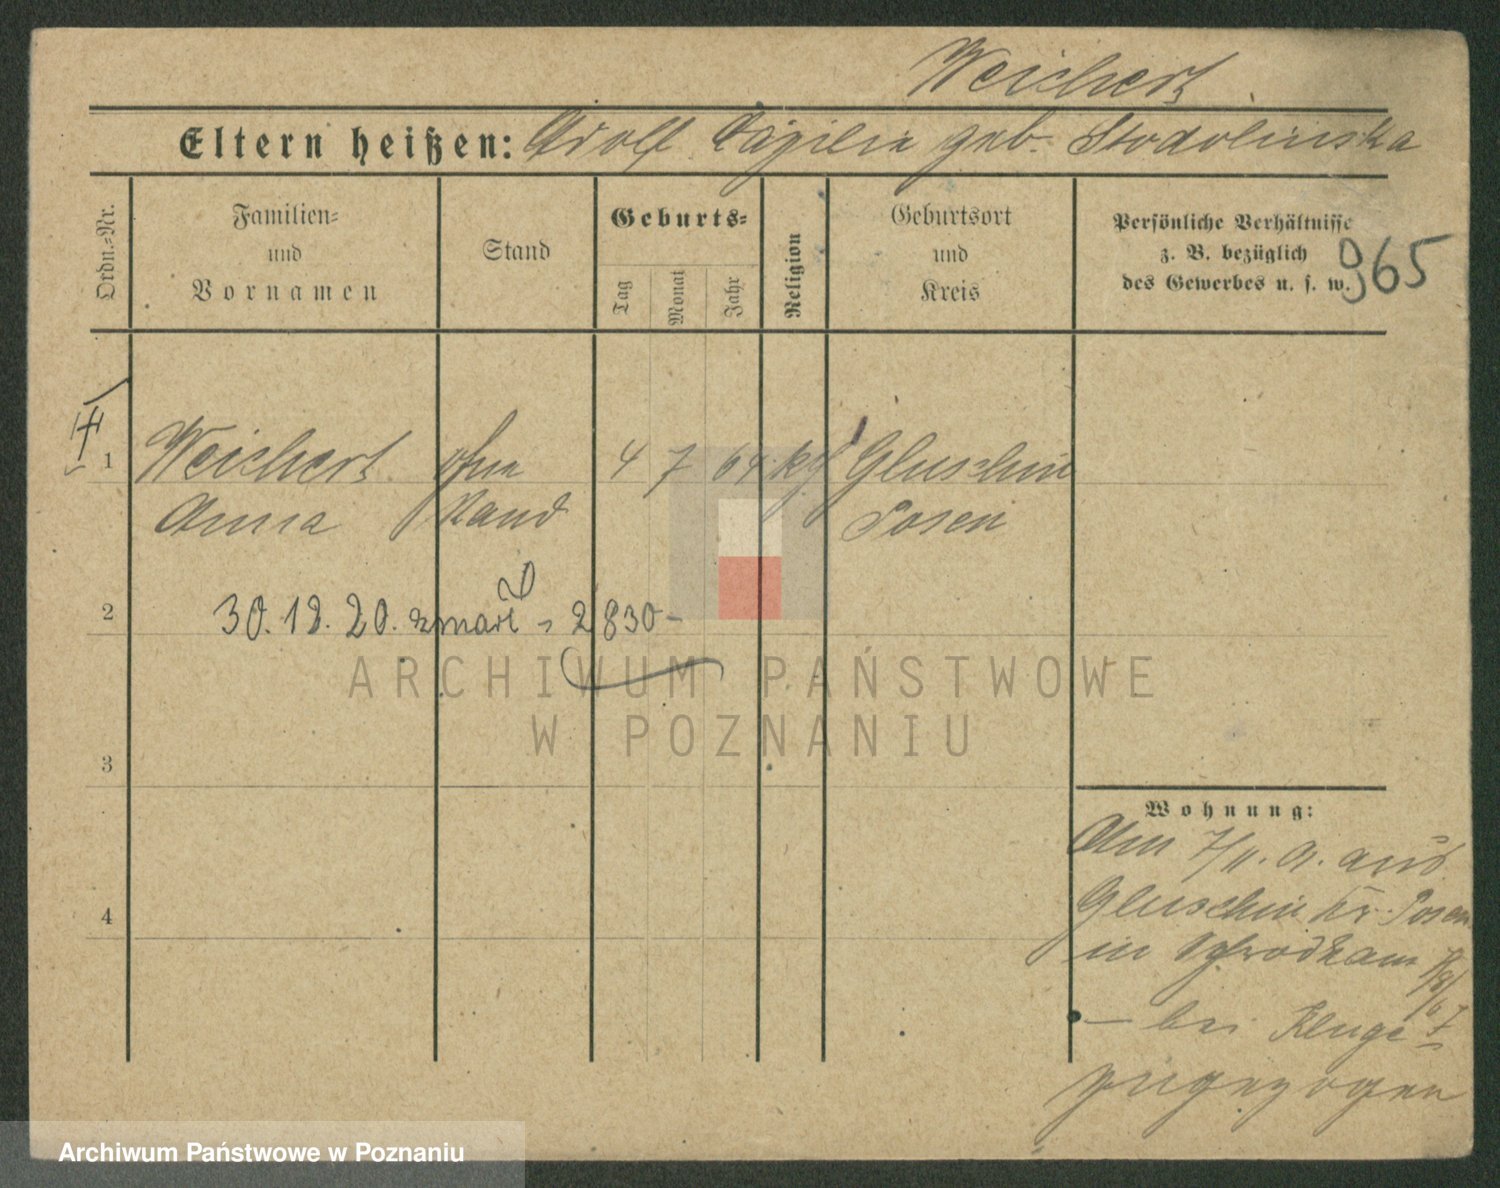 Weichert
Eltern heißen: Adolf Cäzilia geb. Stodolinska
Ordn.-Nr.
Familien-
und
Vornamen
Stand
Geburts-
Tag
Monat
Jahr
Religion
Geburtsort
und
Kreis
Persönliche Verhältnisse
z. B. bezüglich
des Gewerbes u. s. w.
965
1 Weichert ohne 4 7 64 kg Gluschin
Anna Stand Posen
2 30. 12. 20. zmarł 2830-
3
Wohnung:
Am 7/11. a. aus
4 Gluschin Kr. Posen
in Schrodka
- bei Kluge
zugezogen
ARCHIWUM PAŃSTWOWE
W POZNANIU
Archiwum Państwowe w Poznaniu